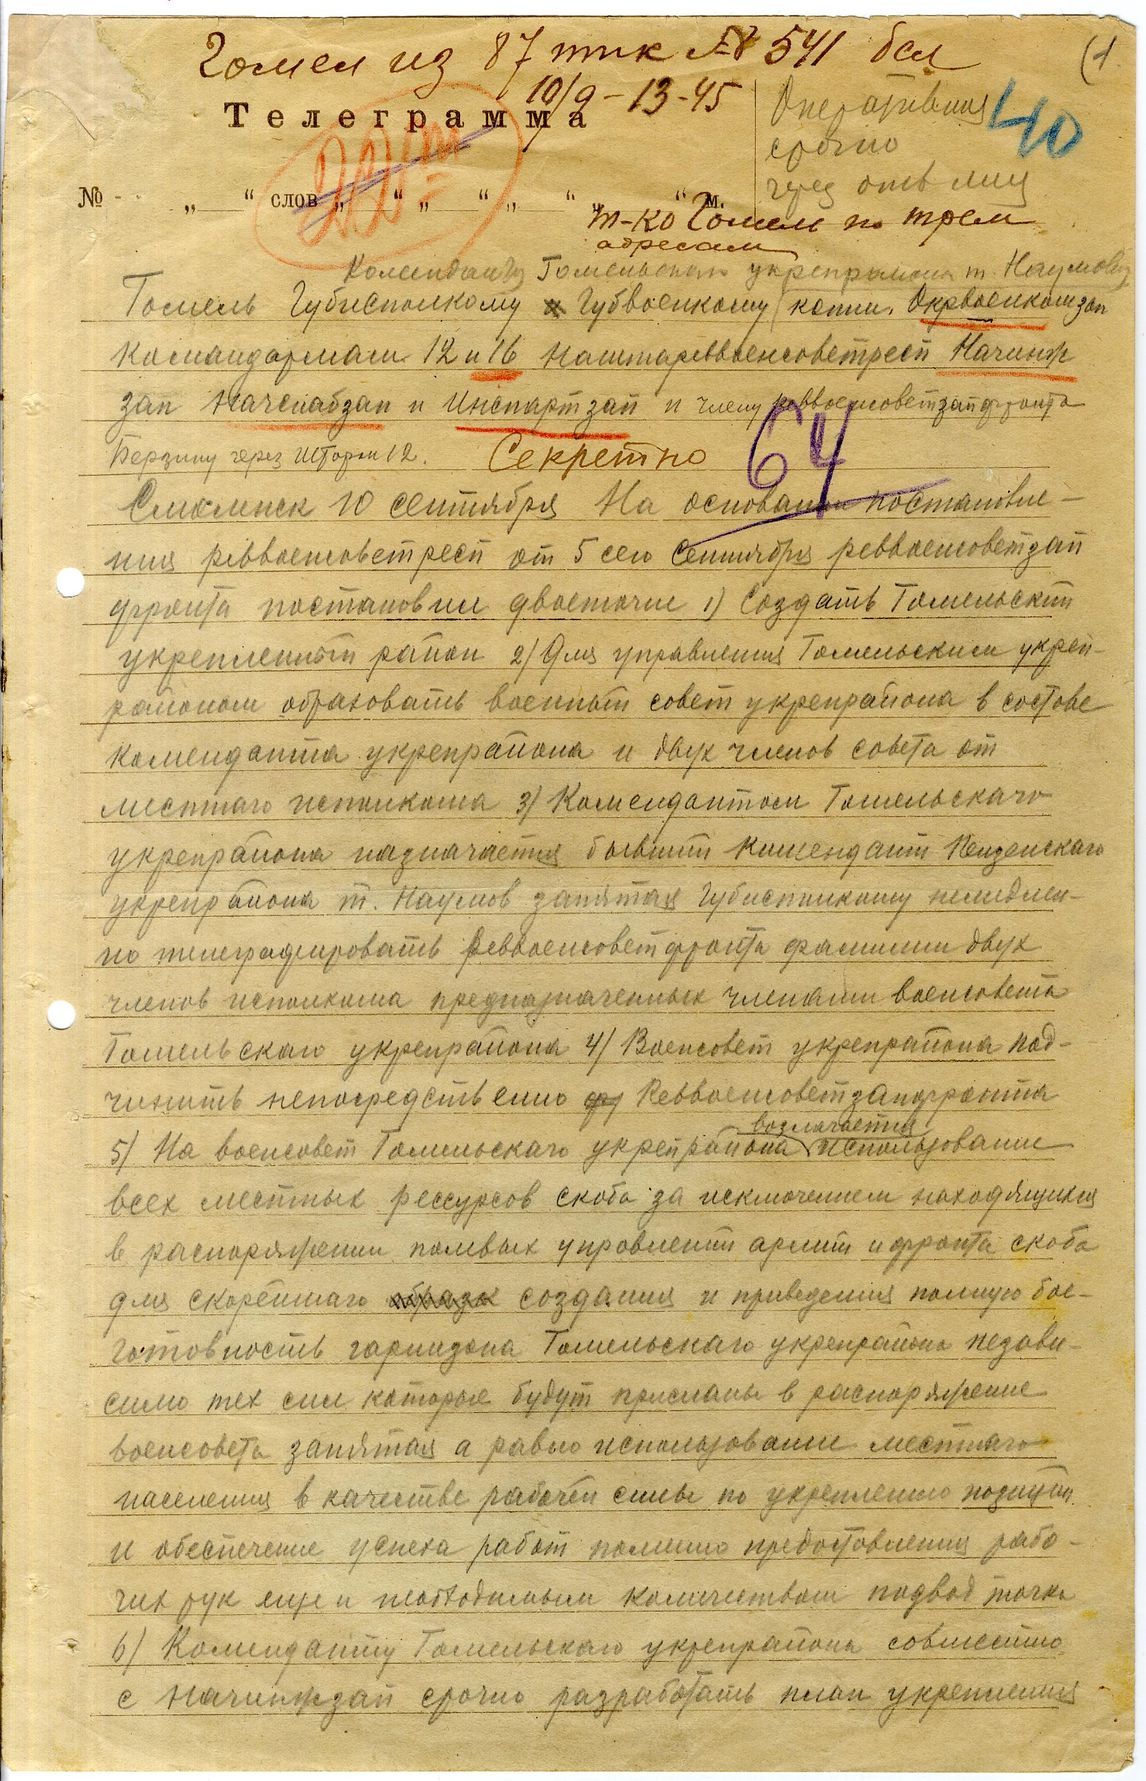 Гомел из 87 тчк № 541 бсл
(1
10/9 - 13-45
Телеграмма
Оперативная
срочно
40
№ „ “ слов „ “ „ “ „ “ „ “ м.
т-ко Гомель по трем
адресам
Коменданту Гомельскаго укрепрайона т. Наумову
Гомель Губисполкому Губвоенкому копии. Окрвоенкомзап
Командармам 12 и 16 Наштареввоенсоветресп Начинж
зап Начснабзап и Инспартзап и члену реввоенсоветзапфронта
Берзину через Штарм 12. Секретно
64
Смоленск 10 сентября На основании постановле-
ния реввоенсоветресп от 5 сего Сентября реввоенсоветзап
фронта постановил двоеточие 1) Создать Гомельский
укрепленный район 2) Для управления Гомельским укреп-
районом образовать военный совет укрепрайона в составе
коменданта укрепрайона и двух членов совета от
местнаго исполкома 3) Комендантом Гомельскаго
укрепрайона назначается бывший комендант Пензенскаго
укрепрайона т. Наумов запятая Губисполкому немедлен-
но телеграфировать Реввоенсоветфронта фамилии двух
членов исполкома предназначенных членами военсовета
Гомельскаго укрепрайона 4) Военсовет укрепрайона под-
чинить непосредственно Реввоенсоветзапфронта
возлагается
5) На военсовет Гомельскаго укрепрайона использование
всех местных рессурсов скоба за исключением находящихся
в распоряжении полевых управлений армий и фронта скоба
для скорейшаго создания и приведения полную бое-
готовность гарнизона Гомельскаго укрепрайона незави-
симо тех сил которые будут присланы в распоряжение
военсовета запятая а равно использование местнаго
населения в качестве рабочей силы по укреплению позиции
и обеспечение успеха работ помимо предоставления рабо-
чих рук еще и необходимым количеством подвод точка
6) Коменданту Гомельскаго укрепрайона совместно
с Начинжзап срочно разработать план укрепления